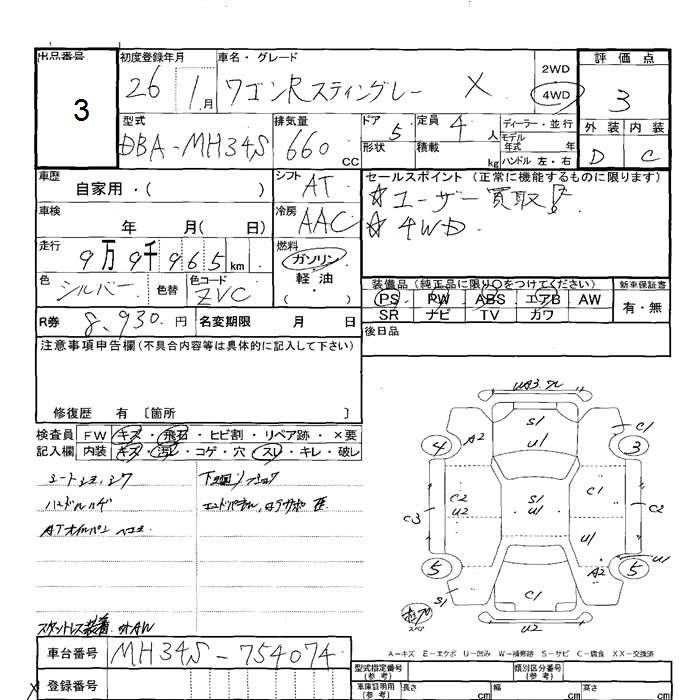 出品番号
3
初度登録年月
26 1月
車名・グレード
ワゴンRスティングレー X
2WD
4WD
評価点
3
外装 内装
D C
型式
DBA-MH34S
排気量
660 CC
ドア 5
形状
定員 4人
積載 kg
ディーラー・並行
モデル
年式 年
ハンドル 左・右
車歴
自家用・( )
シフト
AT
セールスポイント(正常に機能するものに限ります)
☆ユーザー買取!
☆4WD
車検
年 月(日)
冷房
AAC
走行
9万9千965km
燃料
ガソリン
軽油
( )
色
シルバー
色替
色コード
ZVC
装備品(純正品に限り○をつけてください)
新車保証書
PS PW ABS エアB AW
有・無
SR ナビ TV カワ
R券
8,930.円
名変期限 月 日
後日品
注意事項申告欄(不具合内容等は具体的に記入して下さい)
修復歴 有〔箇所 〕
検査員
記入欄
FW キズ・飛石・ヒビ割・リペア跡・×要
内装 キズ・汚レ・コゲ・穴・スレ・キレ・破レ
ハンドルハゲ
ATオイルパン ヘコミ
スタットレス装着
UA3
S1
U1
A2
C1
4
3
C2
U2
S1
U1
C1
C3
C2
U1
5
A2
5
U1
S1
C1
U2
A=キズ E=エクボ U=凹み W=補修跡 S=サビ C=腐食 XX=交換済
車台番号
MH34S-754074
登録番号
型式指定番号
(参考)
類別区分番号
(参考)
車庫証明用
(参考)
長さ cm 幅 cm 高さ cm